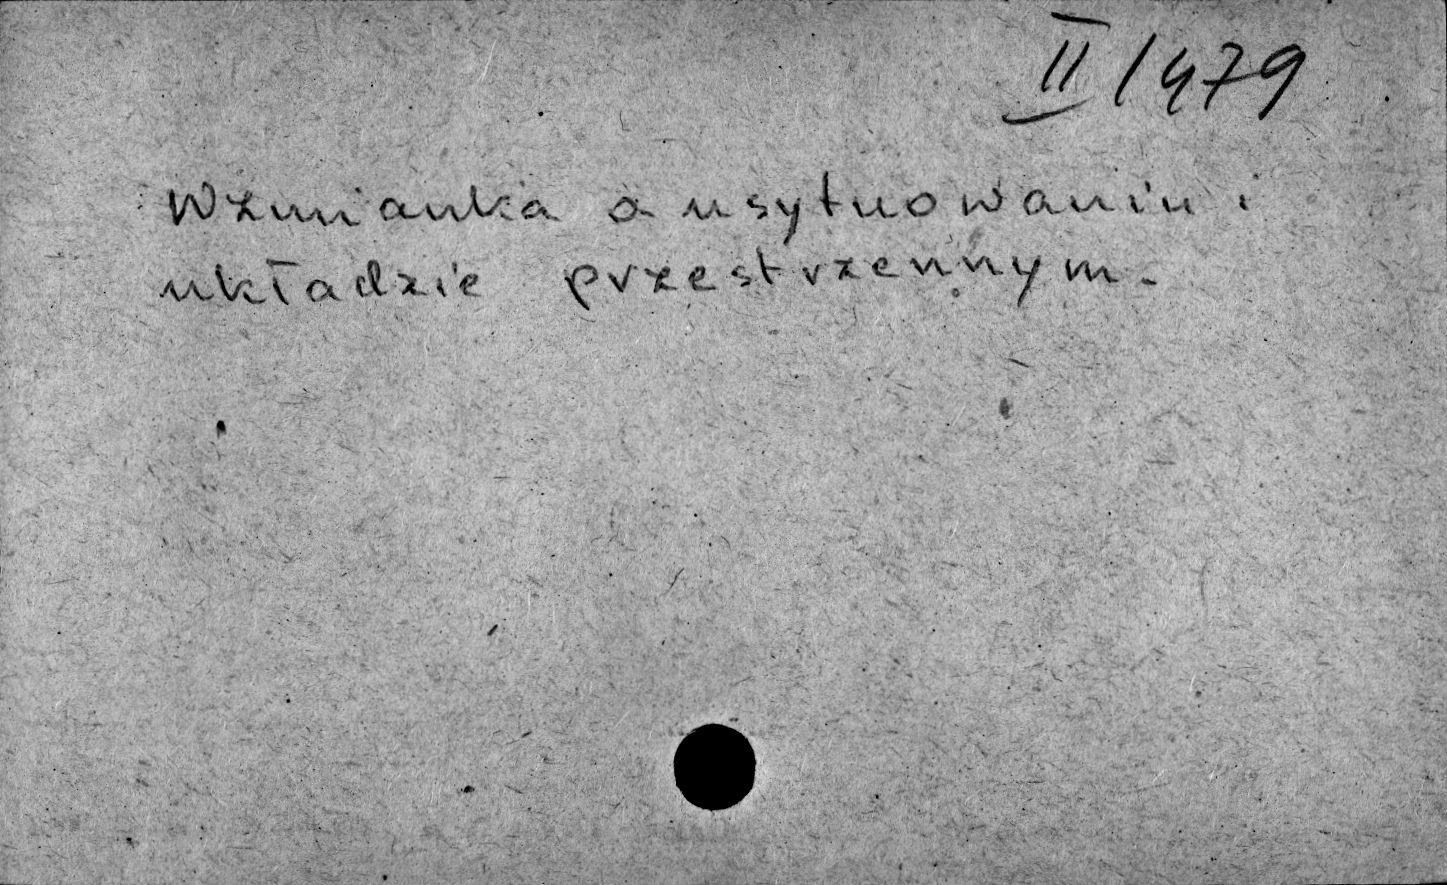 II/479
Wzmianka o usytuowaniu i
układzie przestrzennym.